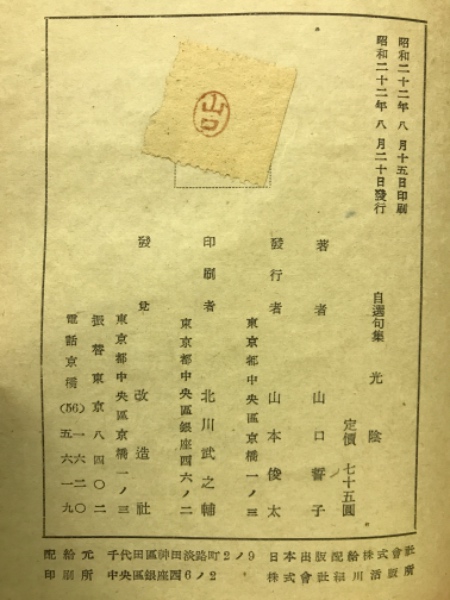 昭和二十二年八月十五日印刷
昭和二十二年八月二十日發行
自選句集 光陰
定價 七十五圓
著者 山口誓子
發行者 山本俊太
東京都中央區京橋一ノ三
印刷者 北川武之輔
東京都中央區銀座西六ノ二
發兌 改造社
東京都中央區京橋一ノ三
振替東京八四〇二
電話京橋(56)一六二〇
五六一九
山口
配給元 千代田區神田淡路町2ノ9 日本出版配給株式會社
印刷所 中央區銀座西6ノ2 株式會社細川活版所